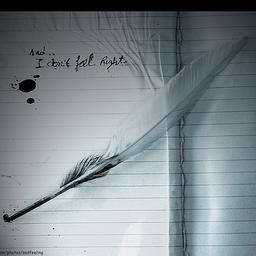 And..
I don't feel Right.
/photos/asdfeeling